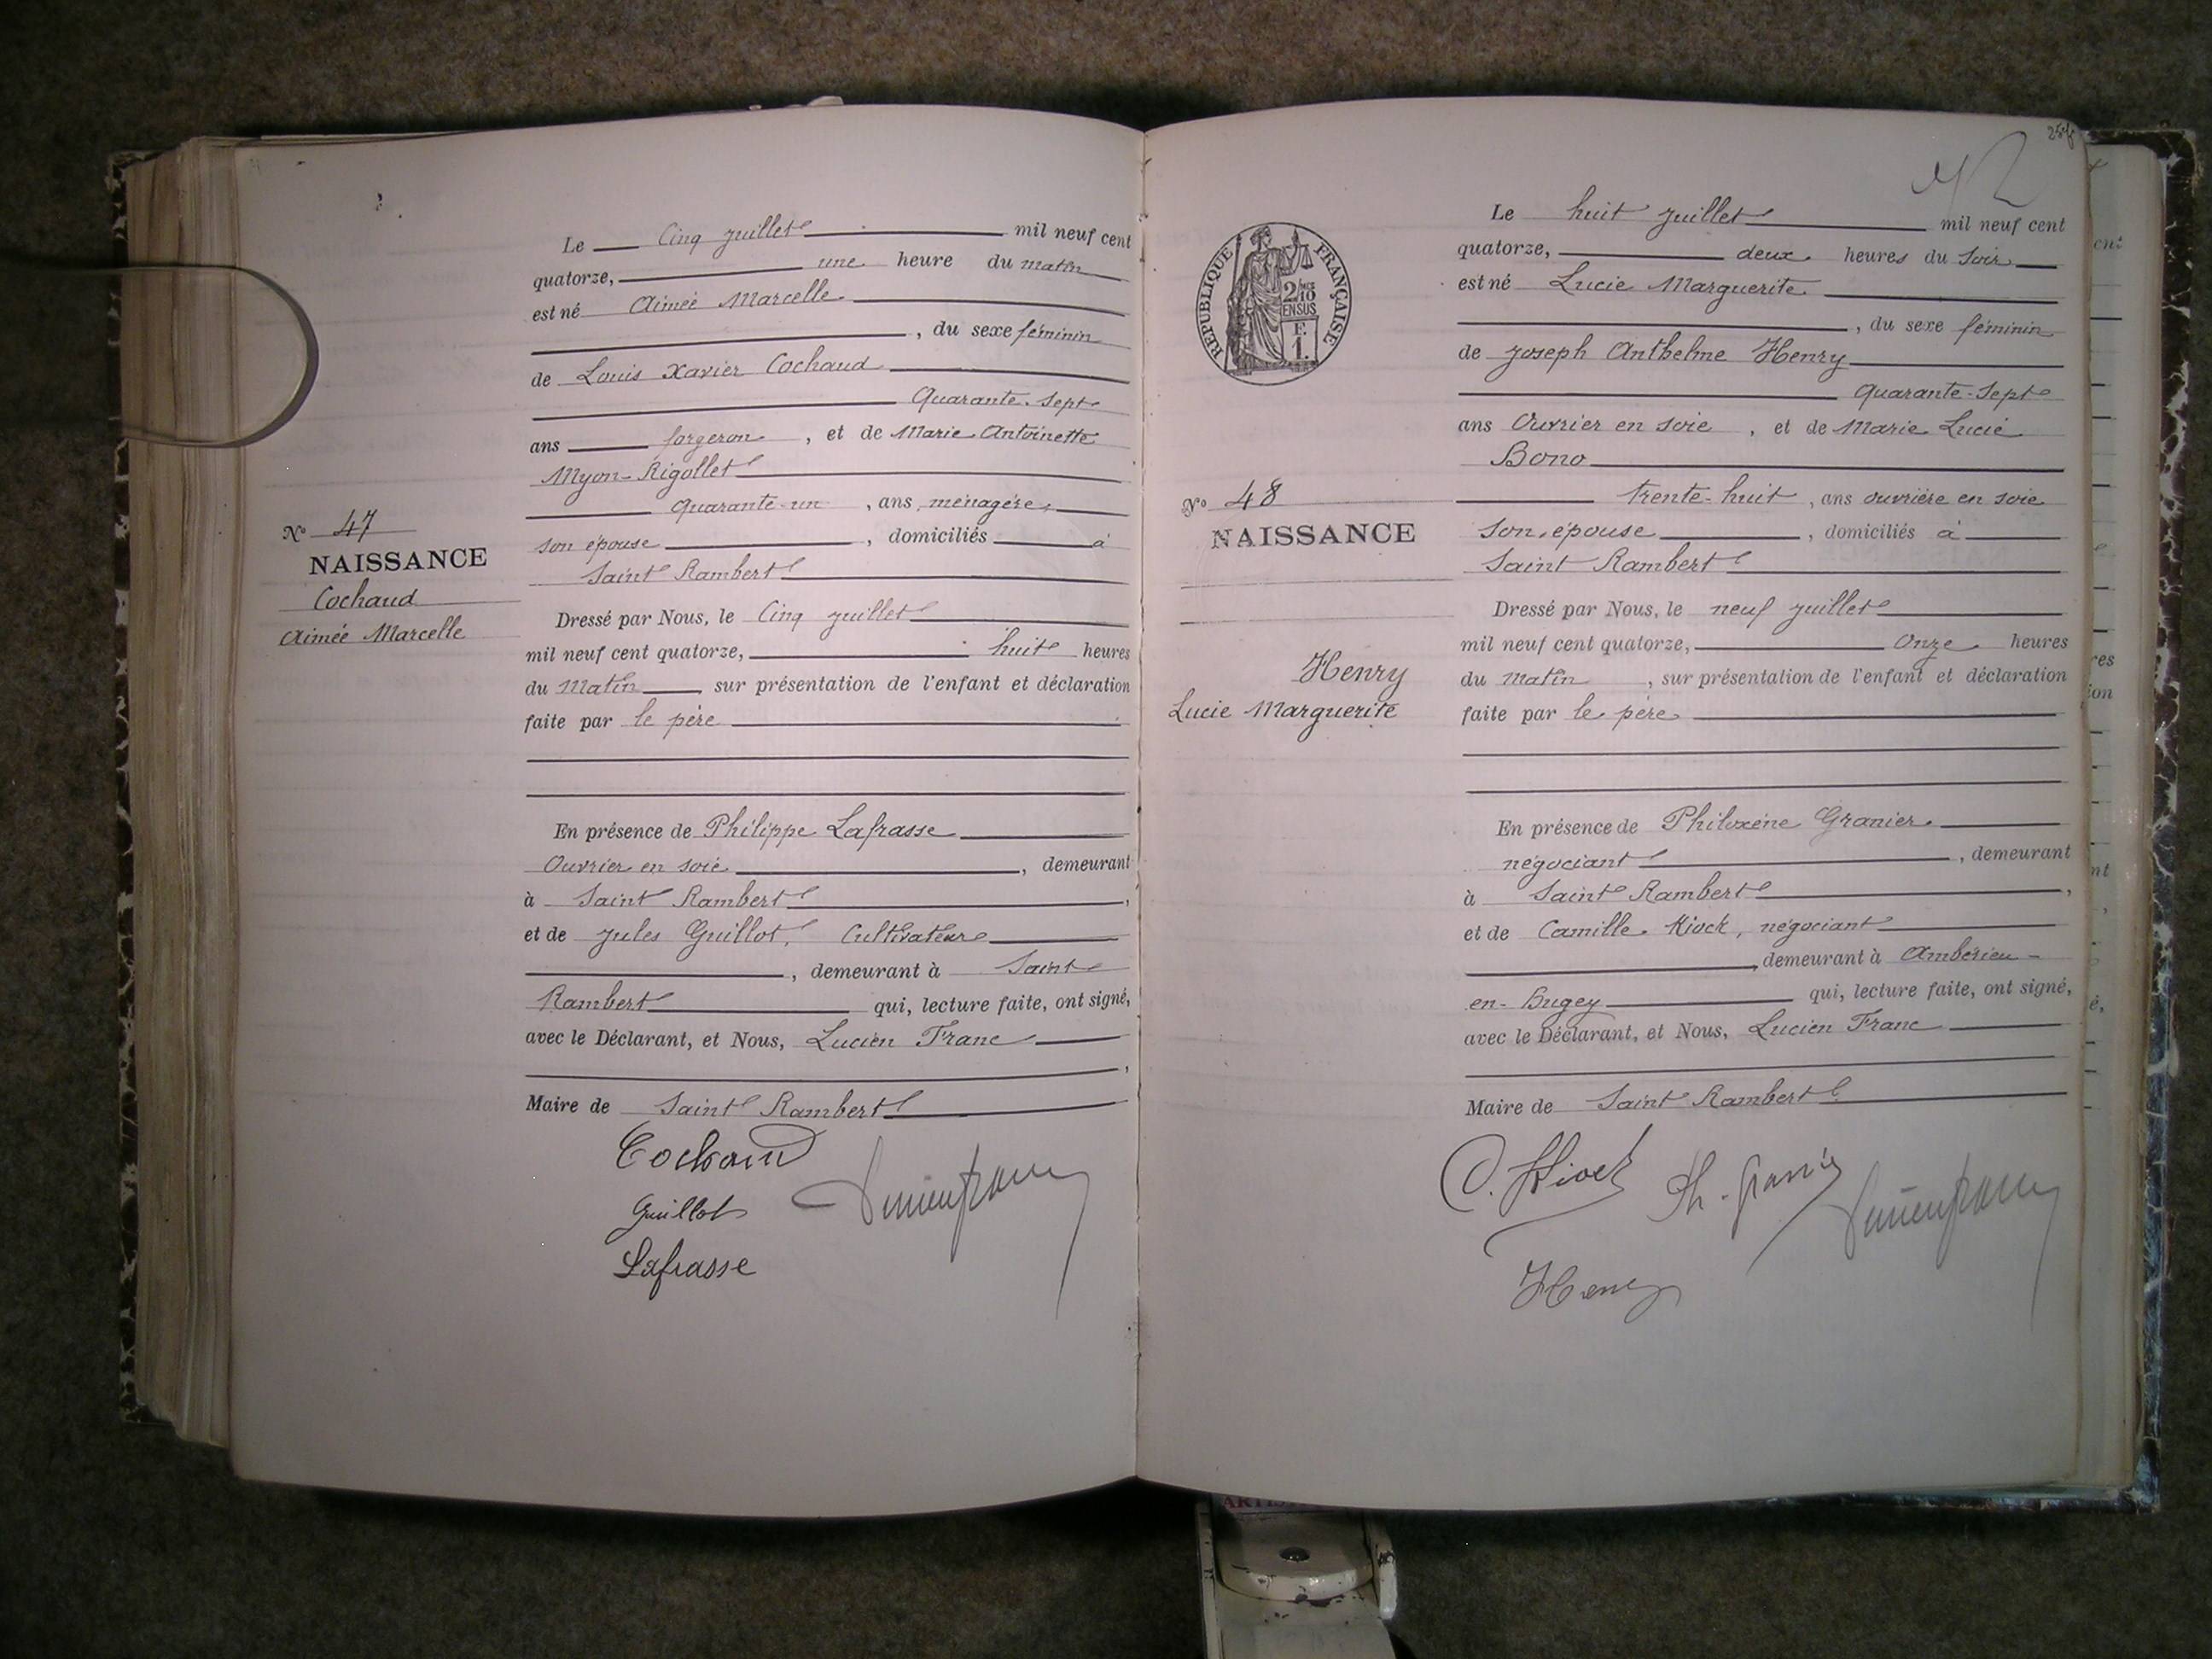 Le Cinq juillet mil neuf cent
quatorze, une heure du matin
est né Aimée Marcelle
, du sexe féminin
de Louis Xavier Cochaud
Quarante-sept
ans forgeron, et de Marie Antoinette
Myon-Rigollet
Quarante-un, ans, ménagère,
son épouse, domiciliés à
Saint Rambert
N° 47
NAISSANCE
Cochaud
Aimée Marcelle
Dressé par Nous, le Cinq juillet
mil neuf cent quatorze, huit heures
du Matin sur présentation de l'enfant et déclaration
faite par le père
En présence de Philippe Lafrasse
Ouvrier en soie, demeurant
à Saint Rambert,
et de Jules Guillot, Cultivateur
, demeurant à Saint
Rambert qui, lecture faite, ont signé,
avec le Déclarant, et Nous, Lucien Franc
,
Maire de Saint Rambert
Cochaud
Guillot
Lafrasse
RÉPUBLIQUE FRANÇAISE
2/10
EN SUS
F.
1.
Le huit juillet mil neuf cent
quatorze, deux heures du soir
est né Lucie Marguerite
, du sexe féminin
de Joseph Anthelme Henry
Quarante-sept
ans Ouvrier en soie, et de Marie Lucie
Bono
trente-huit, ans ouvrière en soie
son épouse, domiciliés à
Saint Rambert
N° 48
NAISSANCE
Henry
Lucie Marguerite
Dressé par Nous, le neuf juillet
mil neuf cent quatorze, Onze heures
du matin, sur présentation de l'enfant et déclaration
faite par le père
En présence de Philoxène Granier
négociant, demeurant
à Saint Rambert,
et de Camille Hiock, négociant
, demeurant à Ambérieu-
en-Bugey qui, lecture faite, ont signé,
avec le Déclarant, et Nous, Lucien Franc
Maire de Saint Rambert
C. Hiock
Ph. Granier
Henry